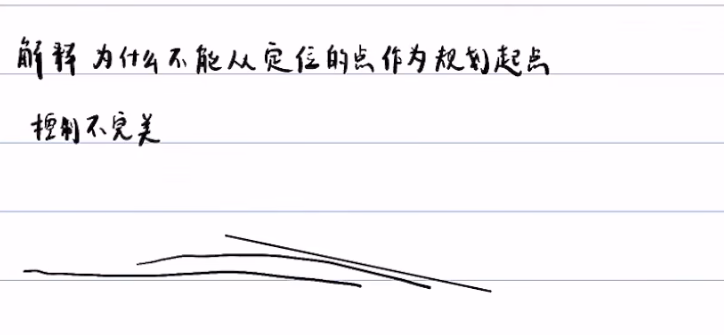 解释为什么不能从定位的点作为规划起点
控制不完美